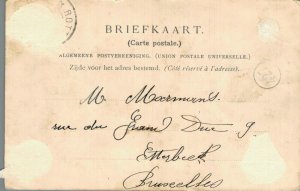 BRIEFKAART.
(Carte postale.)
ALGEMEENE POSTVEREENIGING. (UNION POSTALE UNIVERSELLE.)
Zijde voor het adres bestemd. (Côté réservé à l'adresse).
M Moermans
rue du Grand Duc 9
Etterbeek
Bruxelles